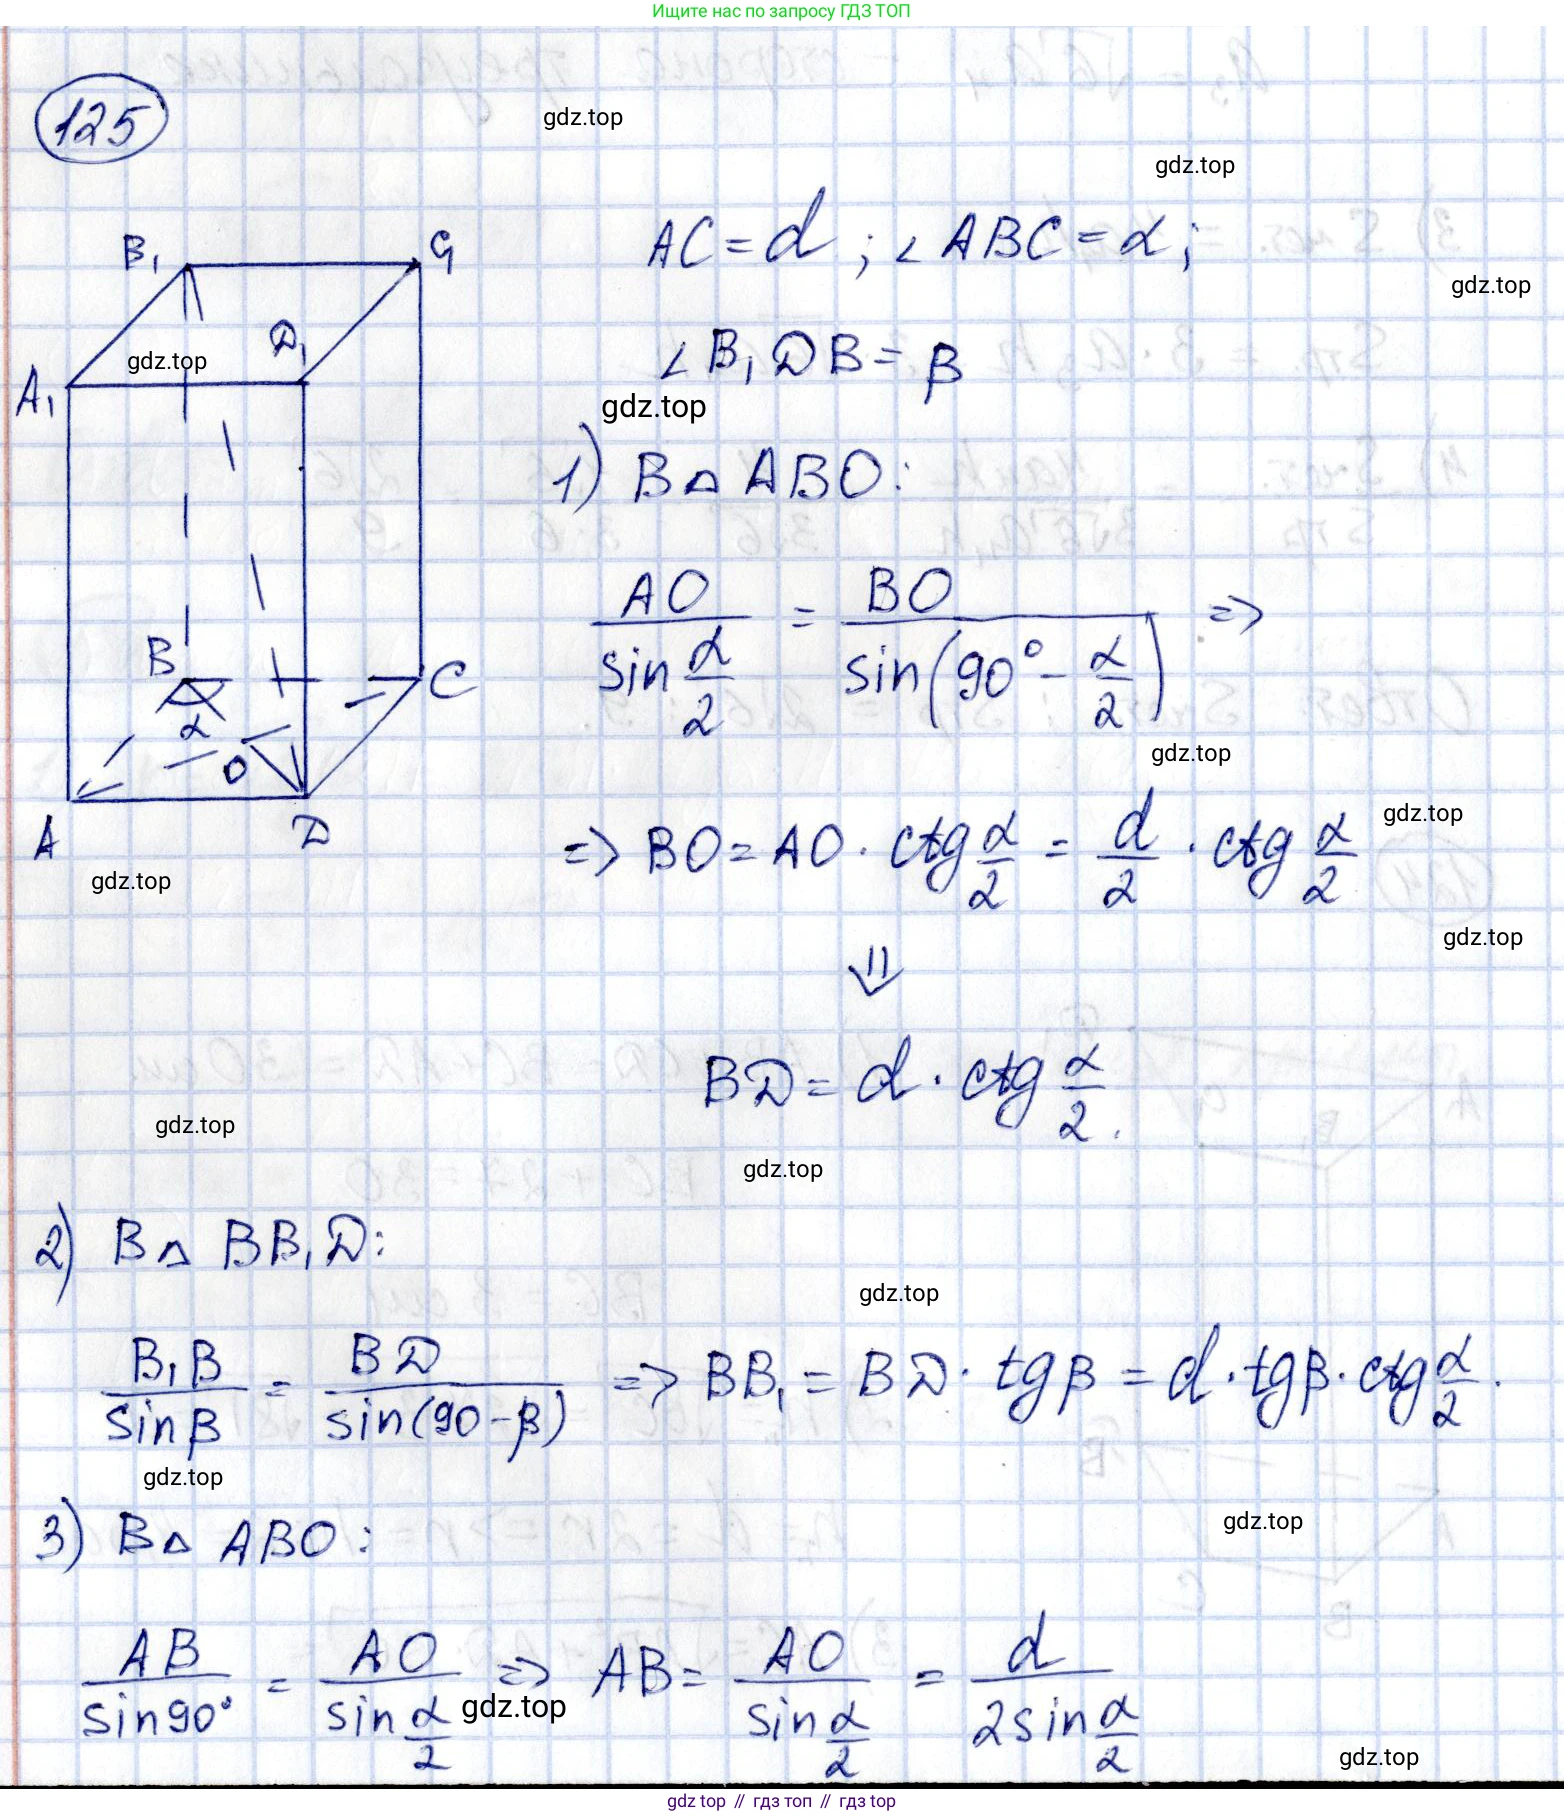 Ищите нас по запросу ГДЗ ТОП
125
gdz.top
gdz.top
AC = d ; ∠ ABC = α ;
gdz.top
∠ B₁DB = β
gdz.top
B₁
C₁
D₁
gdz.top
A₁
B
C
α
O
A
D
gdz.top
1) В △ ABO :
AO / sin α/2 = BO / sin(90° − α/2) =>
gdz.top
gdz.top
=> BO = AO · ctg α/2 = d/2 · ctg α/2
gdz.top
⇓
BD = d · ctg α/2 .
gdz.top
gdz.top
2) В △ BB₁D :
gdz.top
B₁B / sin β = BD / sin(90 − β) => BB₁ = BD · tg β = d · tg β · ctg α/2 .
gdz.top
gdz.top
3) В △ ABO :
AB / sin 90° = AO / sin α/2 => AB = AO / sin α/2 = d / 2 sin α/2
gdz.top
gdz.top
gdz top // гдз топ // гдз top